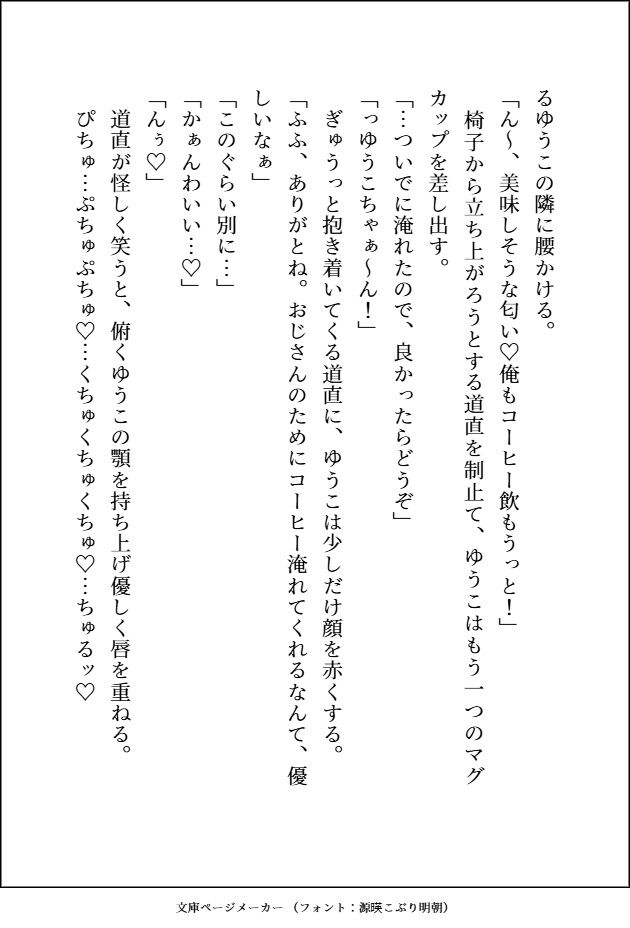 るゆうこの隣に腰かける。
「ん～、美味しそうな匂い♡俺もコーヒー飲もうっと！」
椅子から立ち上がろうとする道直を制止て、ゆうこはもう一つのマグ
カップを差し出す。
「…ついでに淹れたので、良かったらどうぞ」
「っゆうこちゃぁ～ん！」
ぎゅうっと抱き着いてくる道直に、ゆうこは少しだけ顔を赤くする。
「ふふ、ありがとね。おじさんのためにコーヒー淹れてくれるなんて、優
しいなぁ」
「このぐらい別に…」
「かぁんわいい…♡」
「んぅ♡」
道直が怪しく笑うと、俯くゆうこの顎を持ち上げ優しく唇を重ねる。
ぴちゅ…ぷちゅぷちゅ♡…くちゅくちゅくちゅ♡…ちゅるッ♡
文庫ページメーカー （フォント：源暎こぶり明朝）